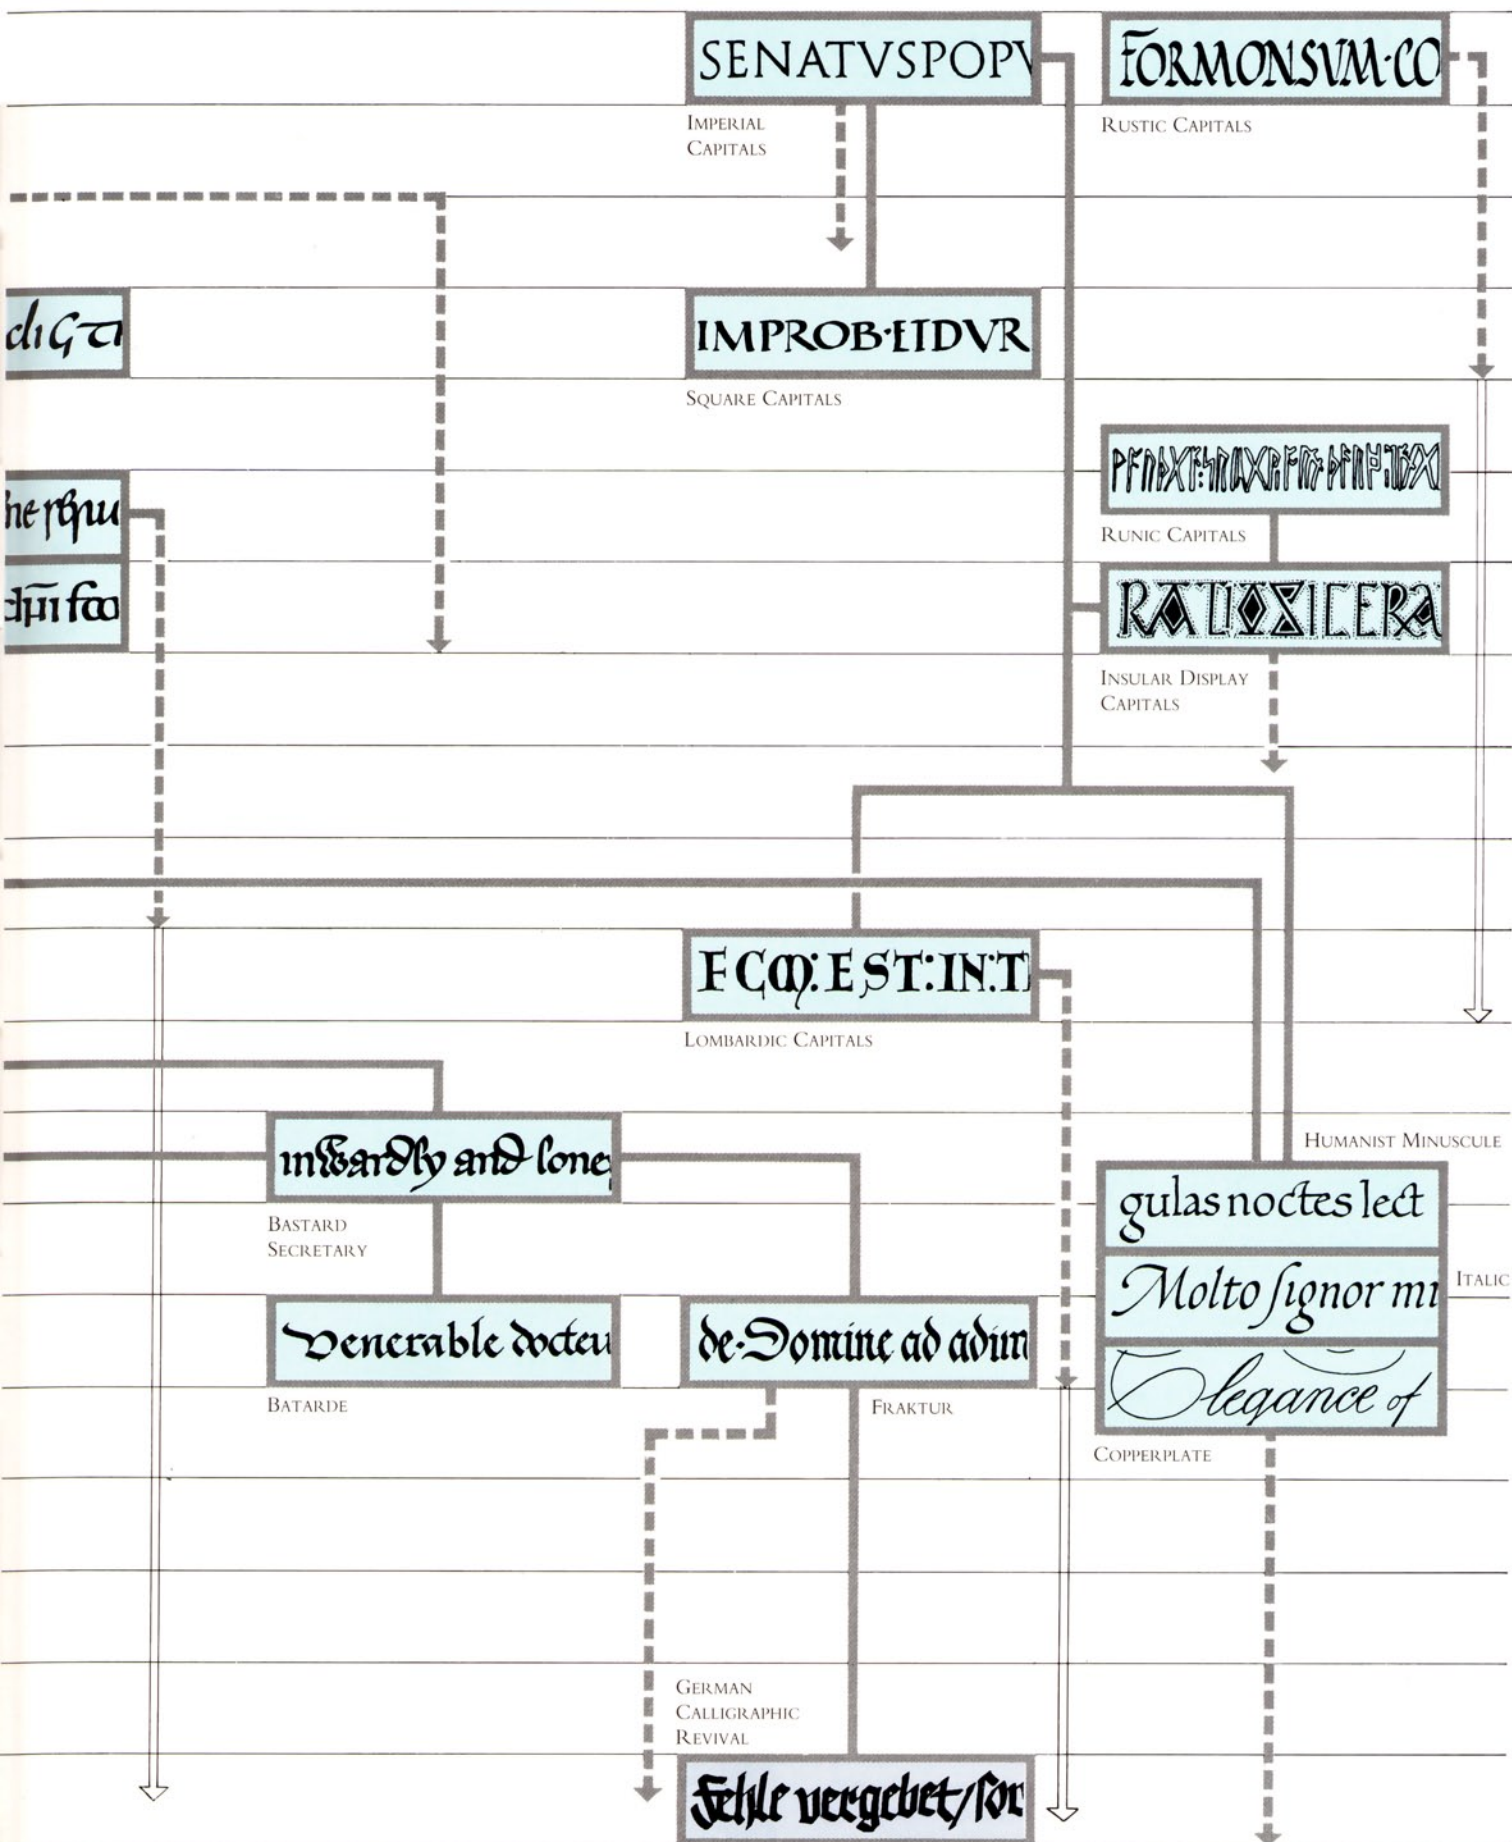 SENATVSPOPV
FORMONSVM·CO
IMPERIAL
CAPITALS
RUSTIC CAPITALS
IMPROB·ETDVR
SQUARE CAPITALS
RUNIC CAPITALS
INSULAR DISPLAY
CAPITALS
E ST:IN:T
LOMBARDIC CAPITALS
inwardly and lone
BASTARD
SECRETARY
HUMANIST MINUSCULE
gulas noctes lect
Molto ſignor mi
ITALIC
Elegance of
COPPERPLATE
Venerable docteu
BATARDE
de·Domine ad adim
FRAKTUR
GERMAN
CALLIGRAPHIC
REVIVAL
Fehle vergebet/ſor